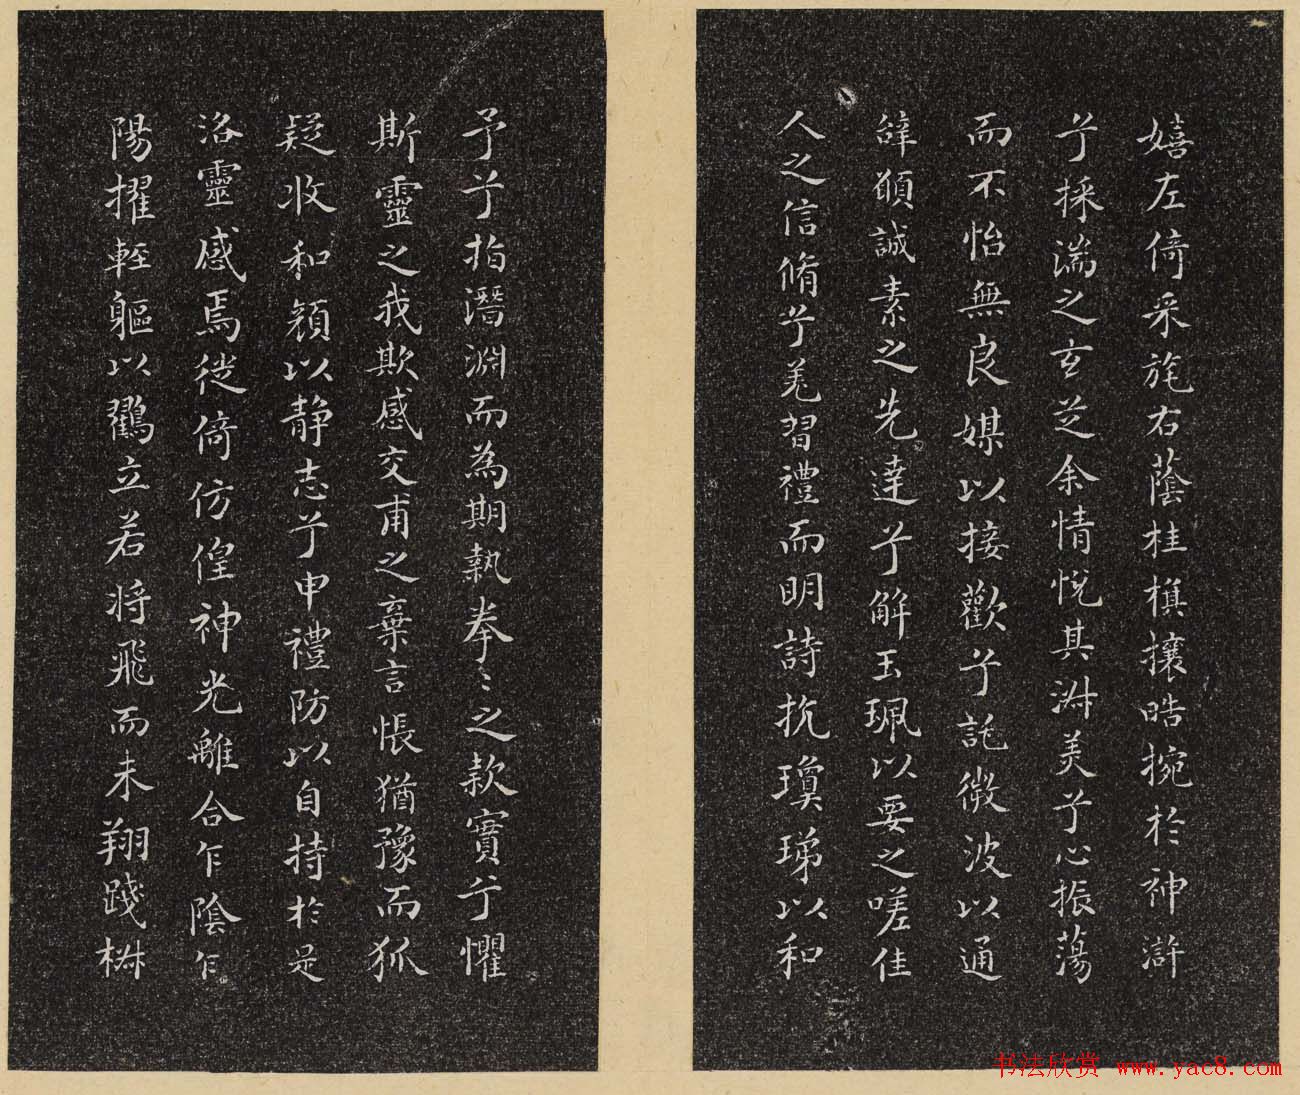 嬉左倚采旄右蔭桂旗攘皓捥於神滸
兮採湍之玄芝余情悅其淑美兮心振蕩
而不怡無良媒以接歡兮託微波以通
辭願誠素之先達兮解玉珮以要之嗟佳
人之信脩兮羌習禮而明詩抗瓊珶以和
予兮指潛淵而為期執拳〻之款實兮懼
斯靈之我欺感交甫之棄言悵猶豫而狐
疑收和顏以靜志兮申禮防以自持於是
洛靈感焉徙倚仿偟神光離合乍陰乍
陽擢輕軀以鶴立若將飛而未翔踐椒
书法欣赏 www.yac8.com